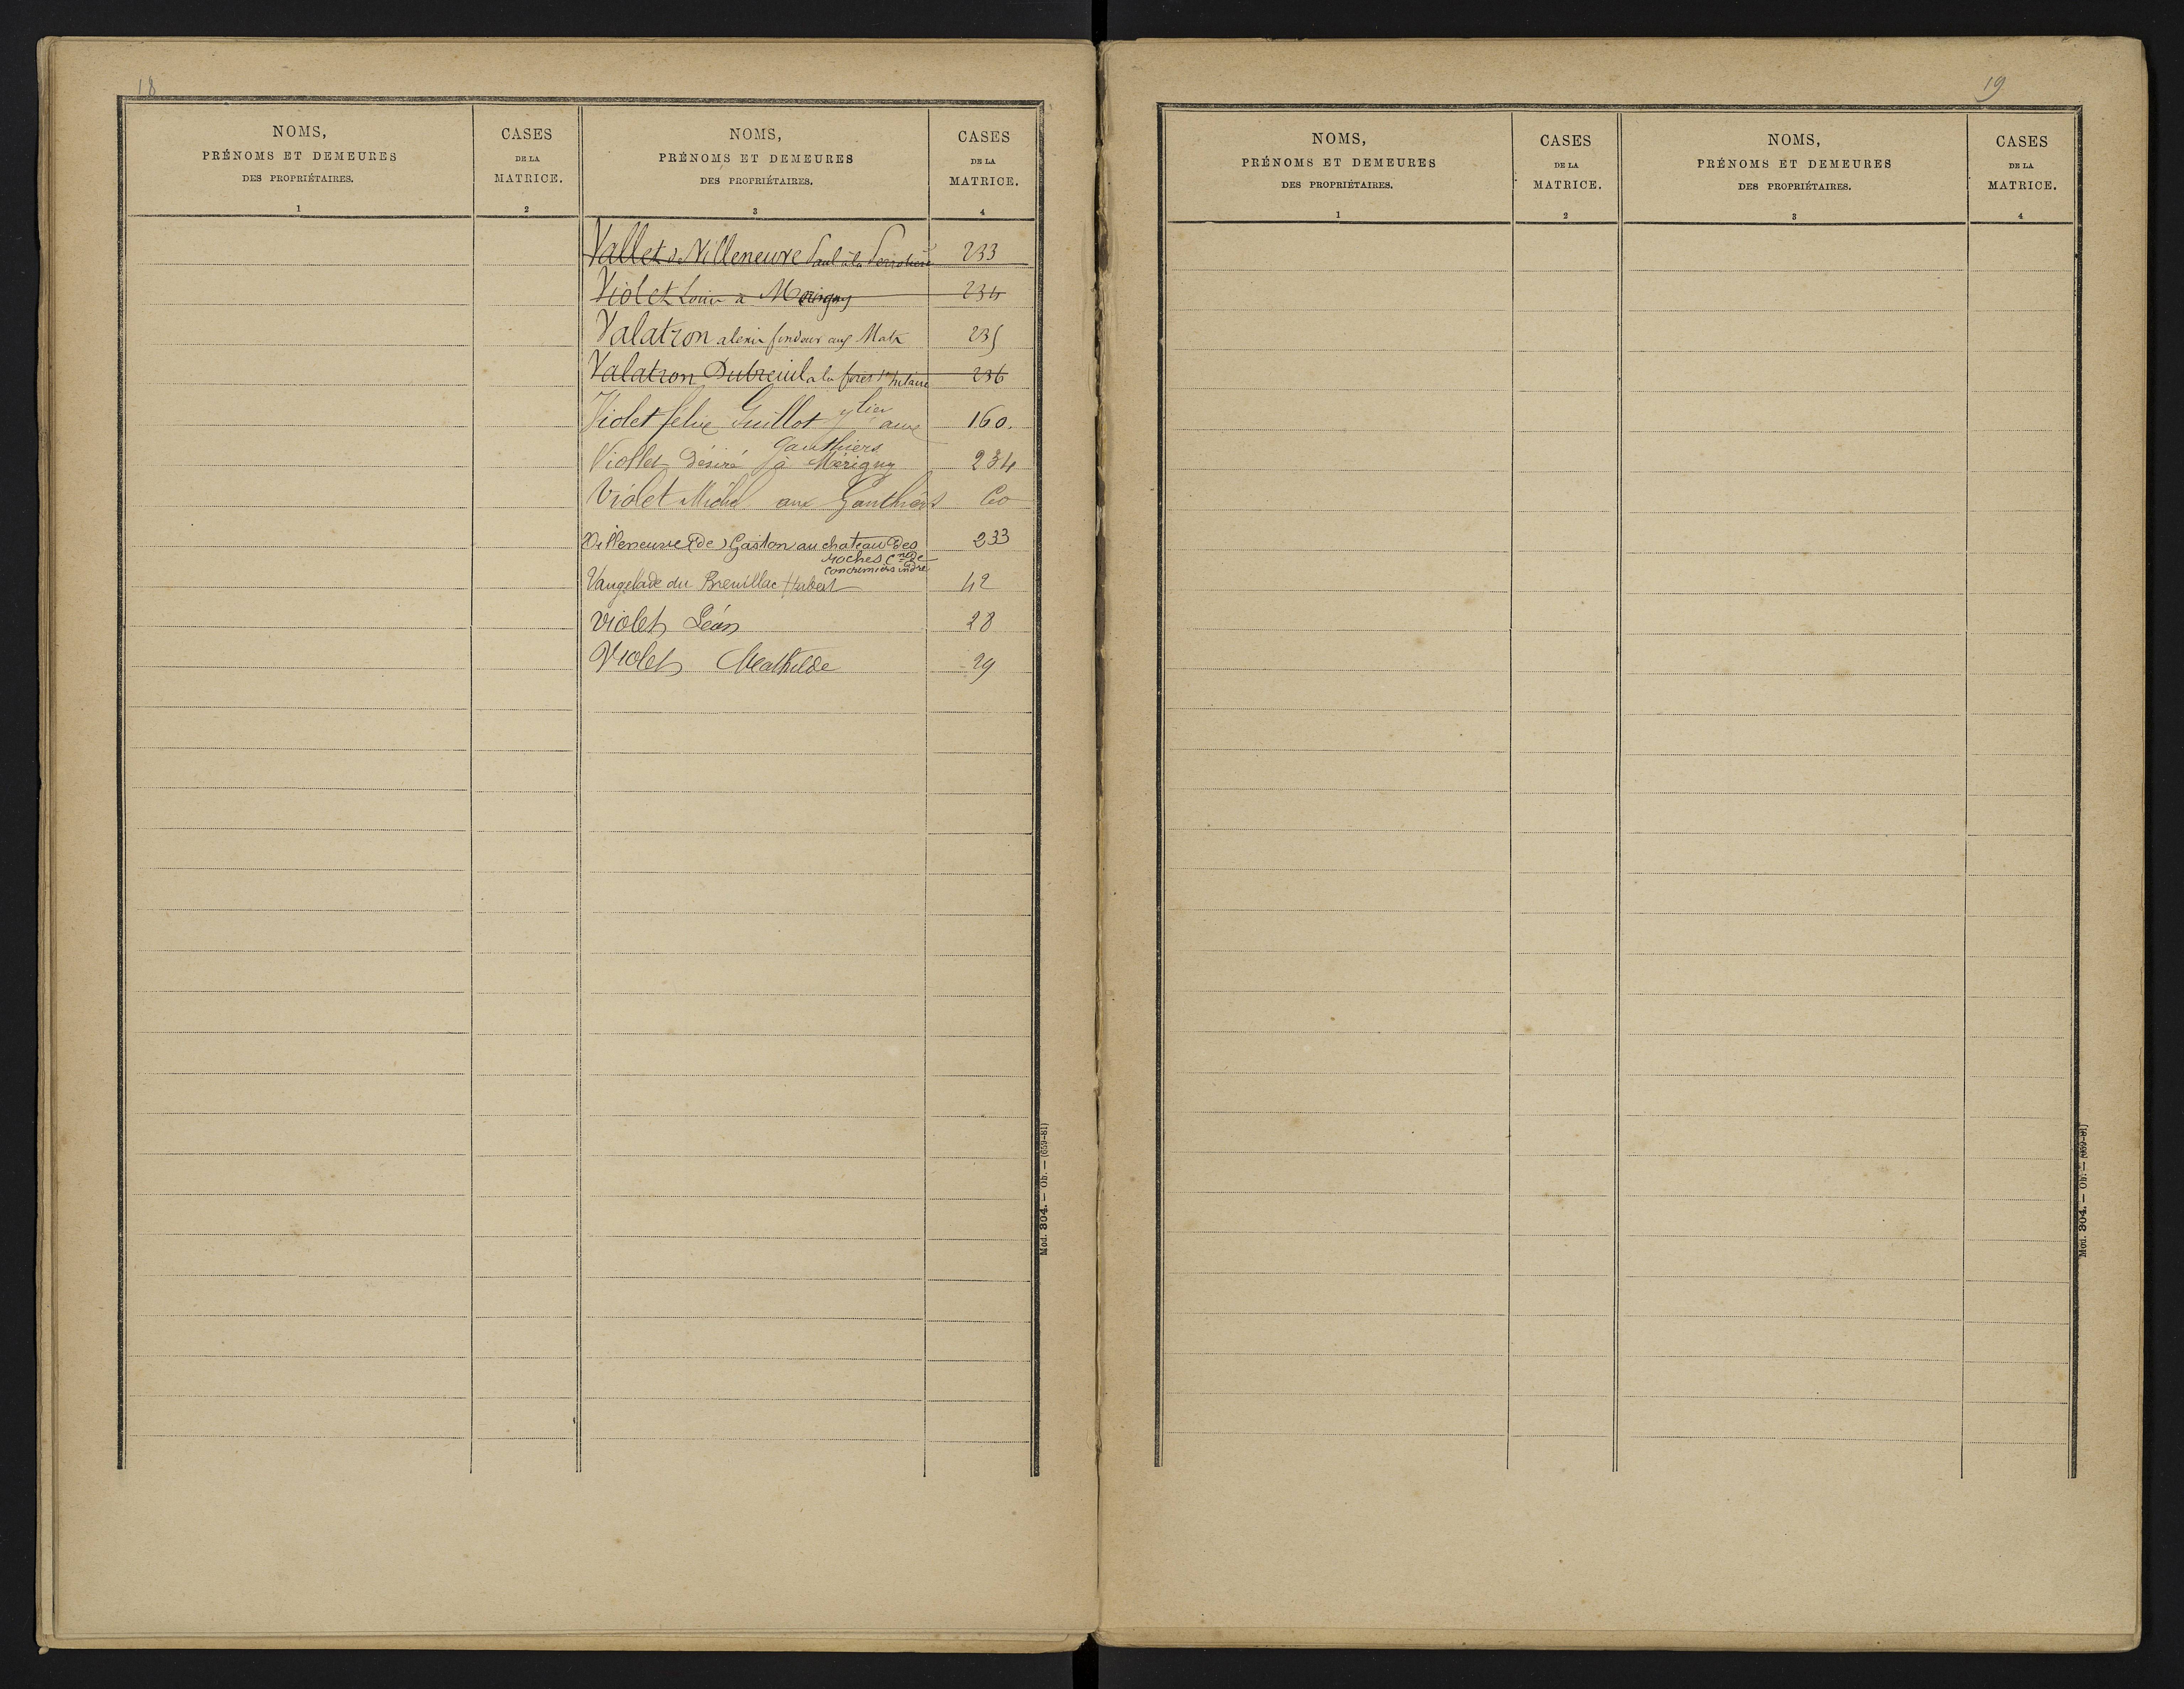 18
NOMS,
PRÉNOMS ET DEMEURES
DES PROPRIÉTAIRES.
1
CASES
DE LA
MATRICE.
2
NOMS,
PRÉNOMS ET DEMEURES
DES PROPRIÉTAIRES.
3
CASES
DE LA
MATRICE.
4
Vallet de Villeneuve Paul à la 233
Violet Louis à Mérigny 234
Valatron alexis fendeur aux 235
Valatron Dubreuil a la 236
Violet felix Guillot aux 160.
Gauthiers
Viollet Désiré à Mérigny 234
Violet Michel aux Gauthiers 60
Villeneuve (de) Gaston au chateau des 233
roches Cne de
Concremiers indre
Vaugelade du Breuillac 42
Violet Léon 28
Violet Mathilde 29
Mod. 304. — Ob. — (659-81)
19
NOMS,
PRÉNOMS ET DEMEURES
DES PROPRIÉTAIRES.
1
CASES
DE LA
MATRICE.
2
NOMS,
PRÉNOMS ET DEMEURES
DES PROPRIÉTAIRES.
3
CASES
DE LA
MATRICE.
4
Mod. 304. — Ob. — (659-81)